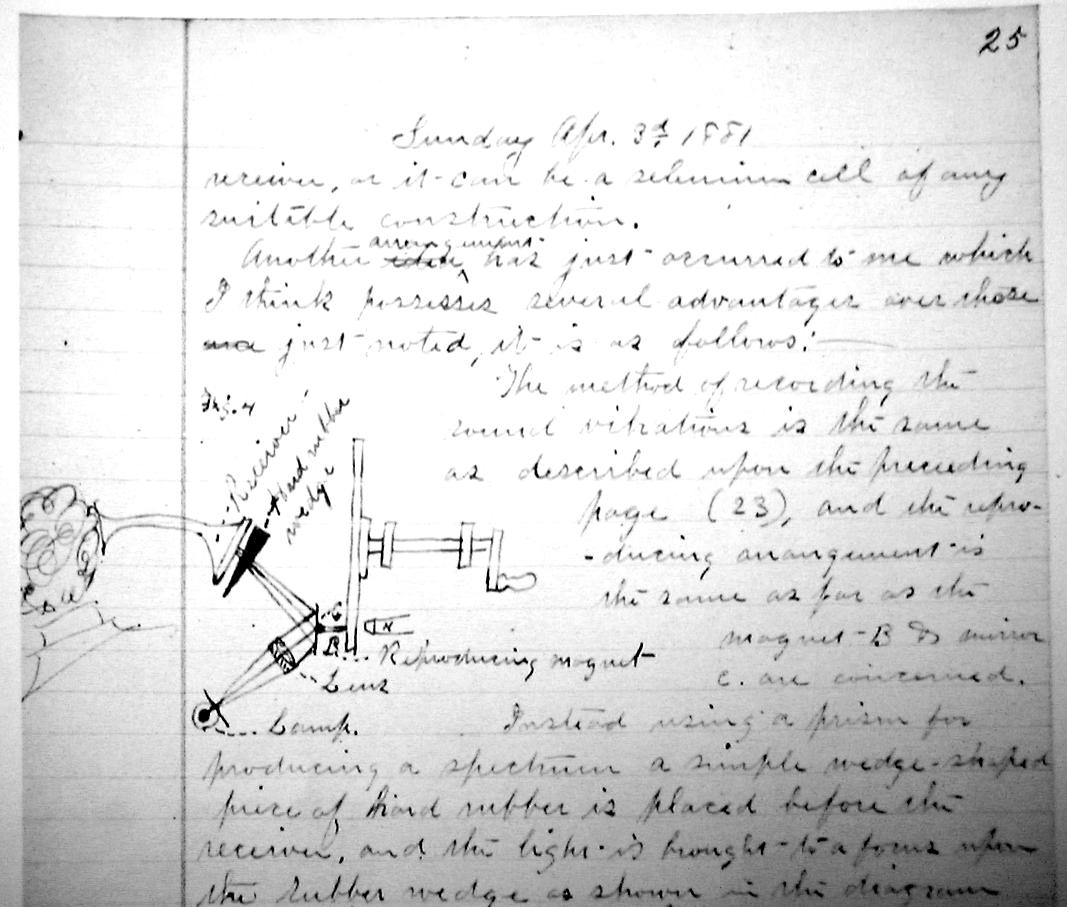 25
Sunday Apr. 3d 1881
receiver, or it can be a selenium cell of any
suitable construction.
arrangement
Another idea ^ has just occurred to me which
I think possesses several advantages over those
just noted, it is as follows:—
The method of recording the
Fig. 4
sound vibrations is the same
as described upon the preceeding
page (23), and the repro-
-ducing arrangement is
the same as far as the
magnet B & mirror
c. are concerned.
Receiver
Hard rubber
wedge
C
B
N
Reproducing magnet
Lens
Lamp.
Instead using a prism for
producing a spectrum a simple wedge-shaped
piece of hard rubber is placed before the
receiver, and the light is brought to a focus upon
the rubber wedge as shown in the diagram